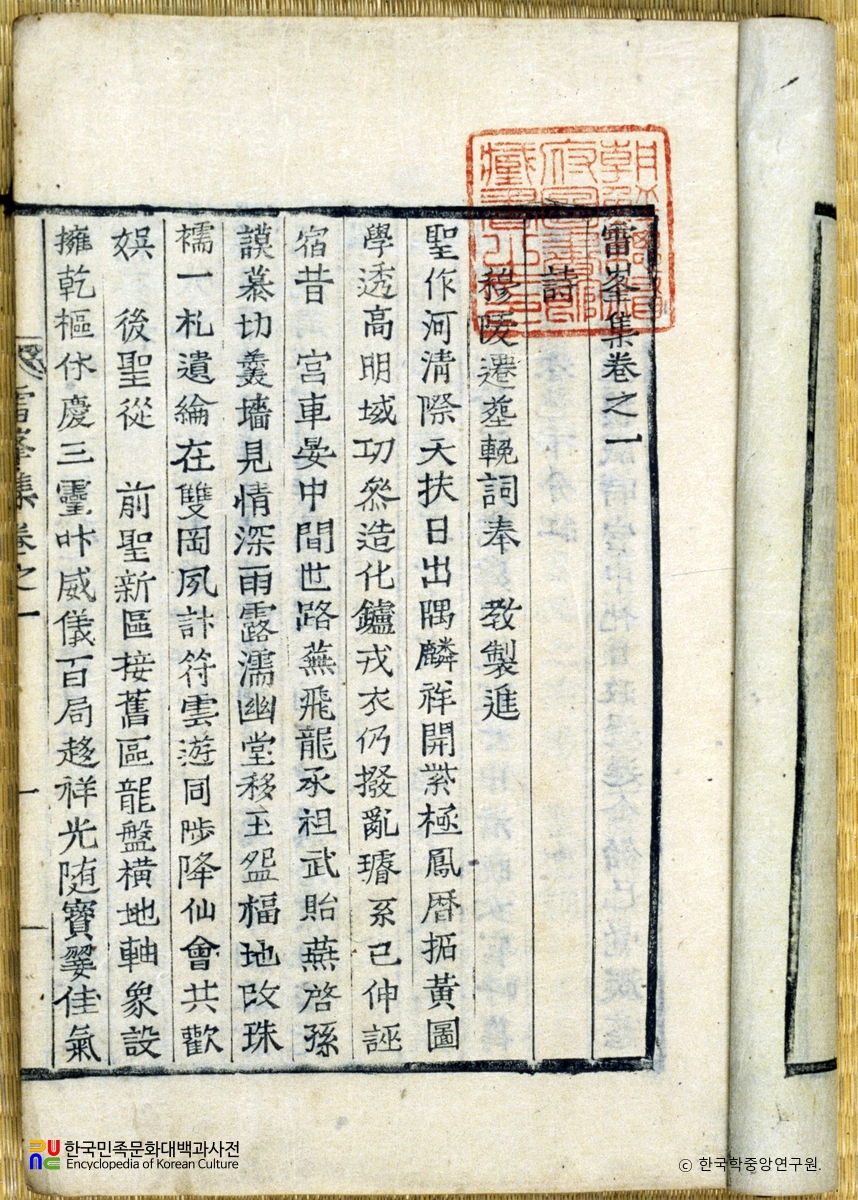 雷峯集卷之一
詩
穆陵遷葬輓詞奉 敎製進
聖作河淸際天扶日出隅麟祥開紫極鳳曆拓黃圖
學透高明域功叅造化鑪戎衣仍撥亂璿系已伸誣
宿昔 宮車晏中間世路蕪飛龍承祖武貽燕啓孫
謨慕切羹墻見情深雨露濡幽堂移玉盌福地改珠
襦一札遺綸在雙岡夙計符雲遊同陟降仙會共歡
娛 後聖從 前聖新區接舊區龍盤橫地軸象設
擁乾樞休慶三靈叶威儀百局趍祥光随寶翣佳氣
雷峯集卷之一
一
한국민족문화대백과사전
Encyclopedia of Korean Culture
© 한국학중앙연구원.